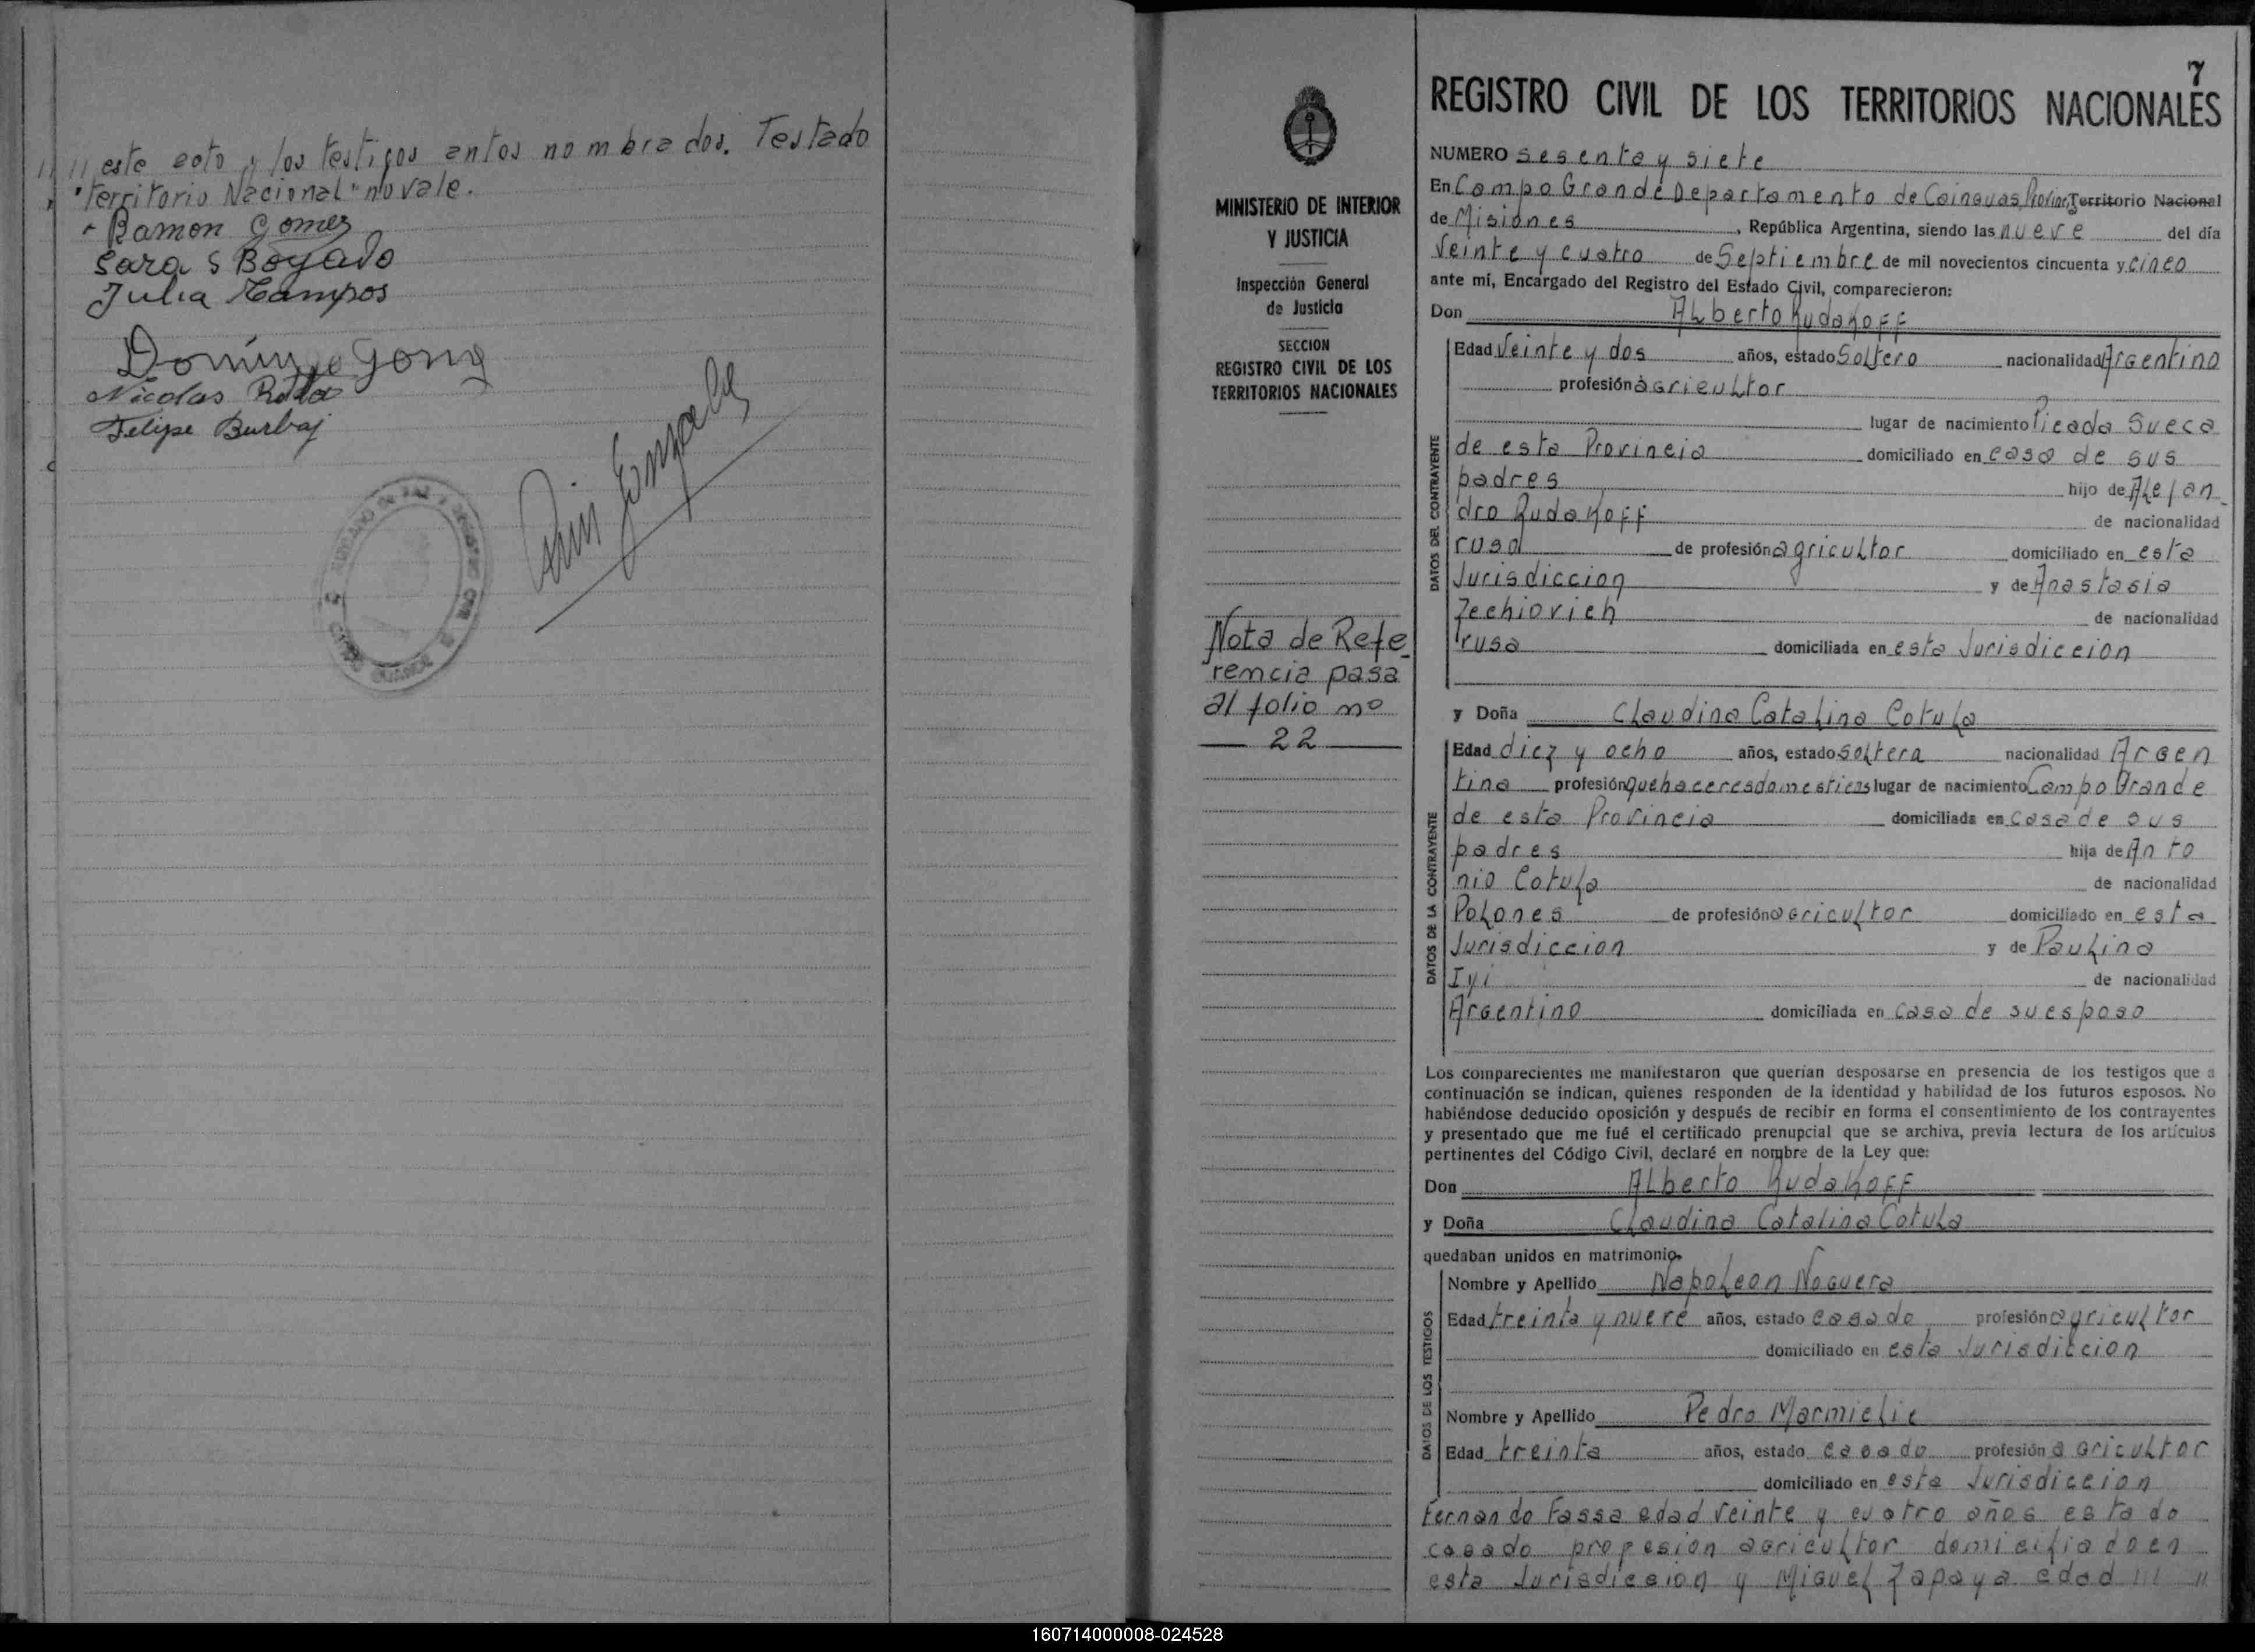 //// este acto y los testigos antes nombrados. Testado
"Territorio Nacional" no vale.
Ramon Gomez
Sara S Boyado
Julia Campos
Domingo
Nicolas
Felipe Burbaj
Luis Gonzalez
7
REGISTRO CIVIL DE LOS TERRITORIOS NACIONALES
MINISTERIO DE INTERIOR
Y JUSTICIA
Inspección General
de Justicia
SECCION
REGISTRO CIVIL DE LOS
TERRITORIOS NACIONALES
Nota de Refe-
rencia pasa
al folio nº
22
NUMERO sesenta y siete
En Campo Grande Departamento de Cainguas, Territorio Nacional
de Misiones, República Argentina, siendo las nueve del día
Veinte y cuatro de Septiembre de mil novecientos cincuenta y cinco
ante mí, Encargado del Registro del Estado Civil, comparecieron:
Don Alberto Rudakoff
DATOS DEL CONTRAYENTE
Edad Veinte y dos años, estado Soltero nacionalidad Argentino
profesión agricultor
lugar de nacimiento Picada Sueca
de esta Provincia domiciliado en casa de sus
padres hijo de Alejan-
dro Rudakoff de nacionalidad
rusa de profesión agricultor domiciliado en esta
Jurisdiccion y de Anastasia
Zechiovich de nacionalidad
rusa domiciliada en esta Jurisdiccion
y Doña Claudina Catalina Cotula
DATOS DE LA CONTRAYENTE
Edad diez y ocho años, estado soltera nacionalidad Argen
tina profesión quehaceres domesticos lugar de nacimiento Campo Grande
de esta Provincia domiciliada en casa de sus
padres hija de Anto
nio Cotula de nacionalidad
Polones de profesión agricultor domiciliado en esta
Jurisdiccion y de Paulina
Iyi de nacionalidad
Argentina domiciliada en casa de su esposo
Los comparecientes me manifestaron que querían desposarse en presencia de los testigos que a
continuación se indican, quienes responden de la identidad y habilidad de los futuros esposos. No
habiéndose deducido oposición y después de recibir en forma el consentimiento de los contrayentes
y presentado que me fué el certificado prenupcial que se archiva, previa lectura de los artículos
pertinentes del Código Civil, declaré en nombre de la Ley que:
Don Alberto Rudakoff
y Doña Claudina Catalina Cotula
quedaban unidos en matrimonio.
DATOS DE LOS TESTIGOS
Nombre y Apellido Napoleon Noguera
Edad treinta y nueve años, estado casado profesión agricultor
domiciliado en esta Jurisdiccion
Nombre y Apellido Pedro Marmielic
Edad treinta años, estado casado profesión agricultor
domiciliado en esta Jurisdiccion
Fernando Fassa edad veinte y cuatro años estado
casado profesion agricultor domiciliado en
esta Jurisdiccion y Miguel Zapaya edad //// //
160714000008-024528